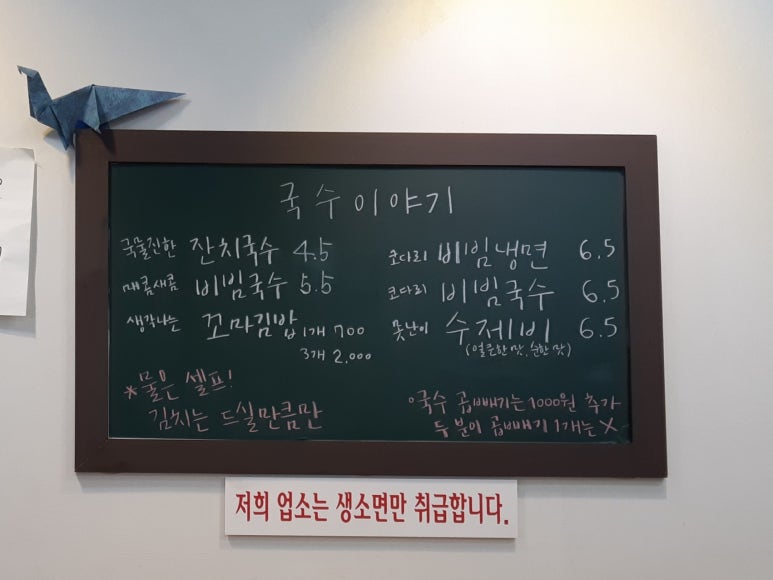 국수이야기
국물진한 잔치국수 4.5
매콤새콤 비빔국수 5.5
생각나는 꼬마김밥 1개 700
3개 2,000
코다리 비빔냉면 6.5
코다리 비빔국수 6.5
못난이 수제비 6.5
(얼큰한 맛, 순한 맛)
*물은 셀프!
김치는 드실만큼만
○국수 곱빼기는 1000원 추가
두분이 곱빼기 1개는 X
저희 업소는 생소면만 취급합니다.